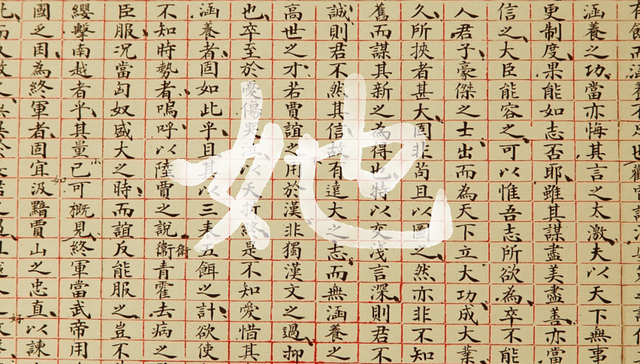 她
涵養之功當亦悔其言之太激夫以天下無事
更制度果能如志否耶雖其謀盡美盡善亦當
信之大臣能容之可以惟吾志所欲為卒不能
人君子豪傑之士出而為天下立大功成大業
久所挾者甚大固非苟且以圖之然亦非不知
舊而謀其新之為得也特以交淺言深則君不
誠則君不然其信故有遠大之志而無涵養之
高世之才若賈誼之用於漢非獨漢文之過抑
也卒至於憂傷哭以夭是不知愛惜其
涵養者固如此乎且其以三表五餌之計欲使
不知時勢者嗚呼以陸賈之說衛青霍去病之
臣服况當匈奴盛大之時而誼反能服之豈不
纓繫南越者乎其量已可概見終軍當武帝用
國之困為終軍者固宜汲黯賈山之忠直以諫